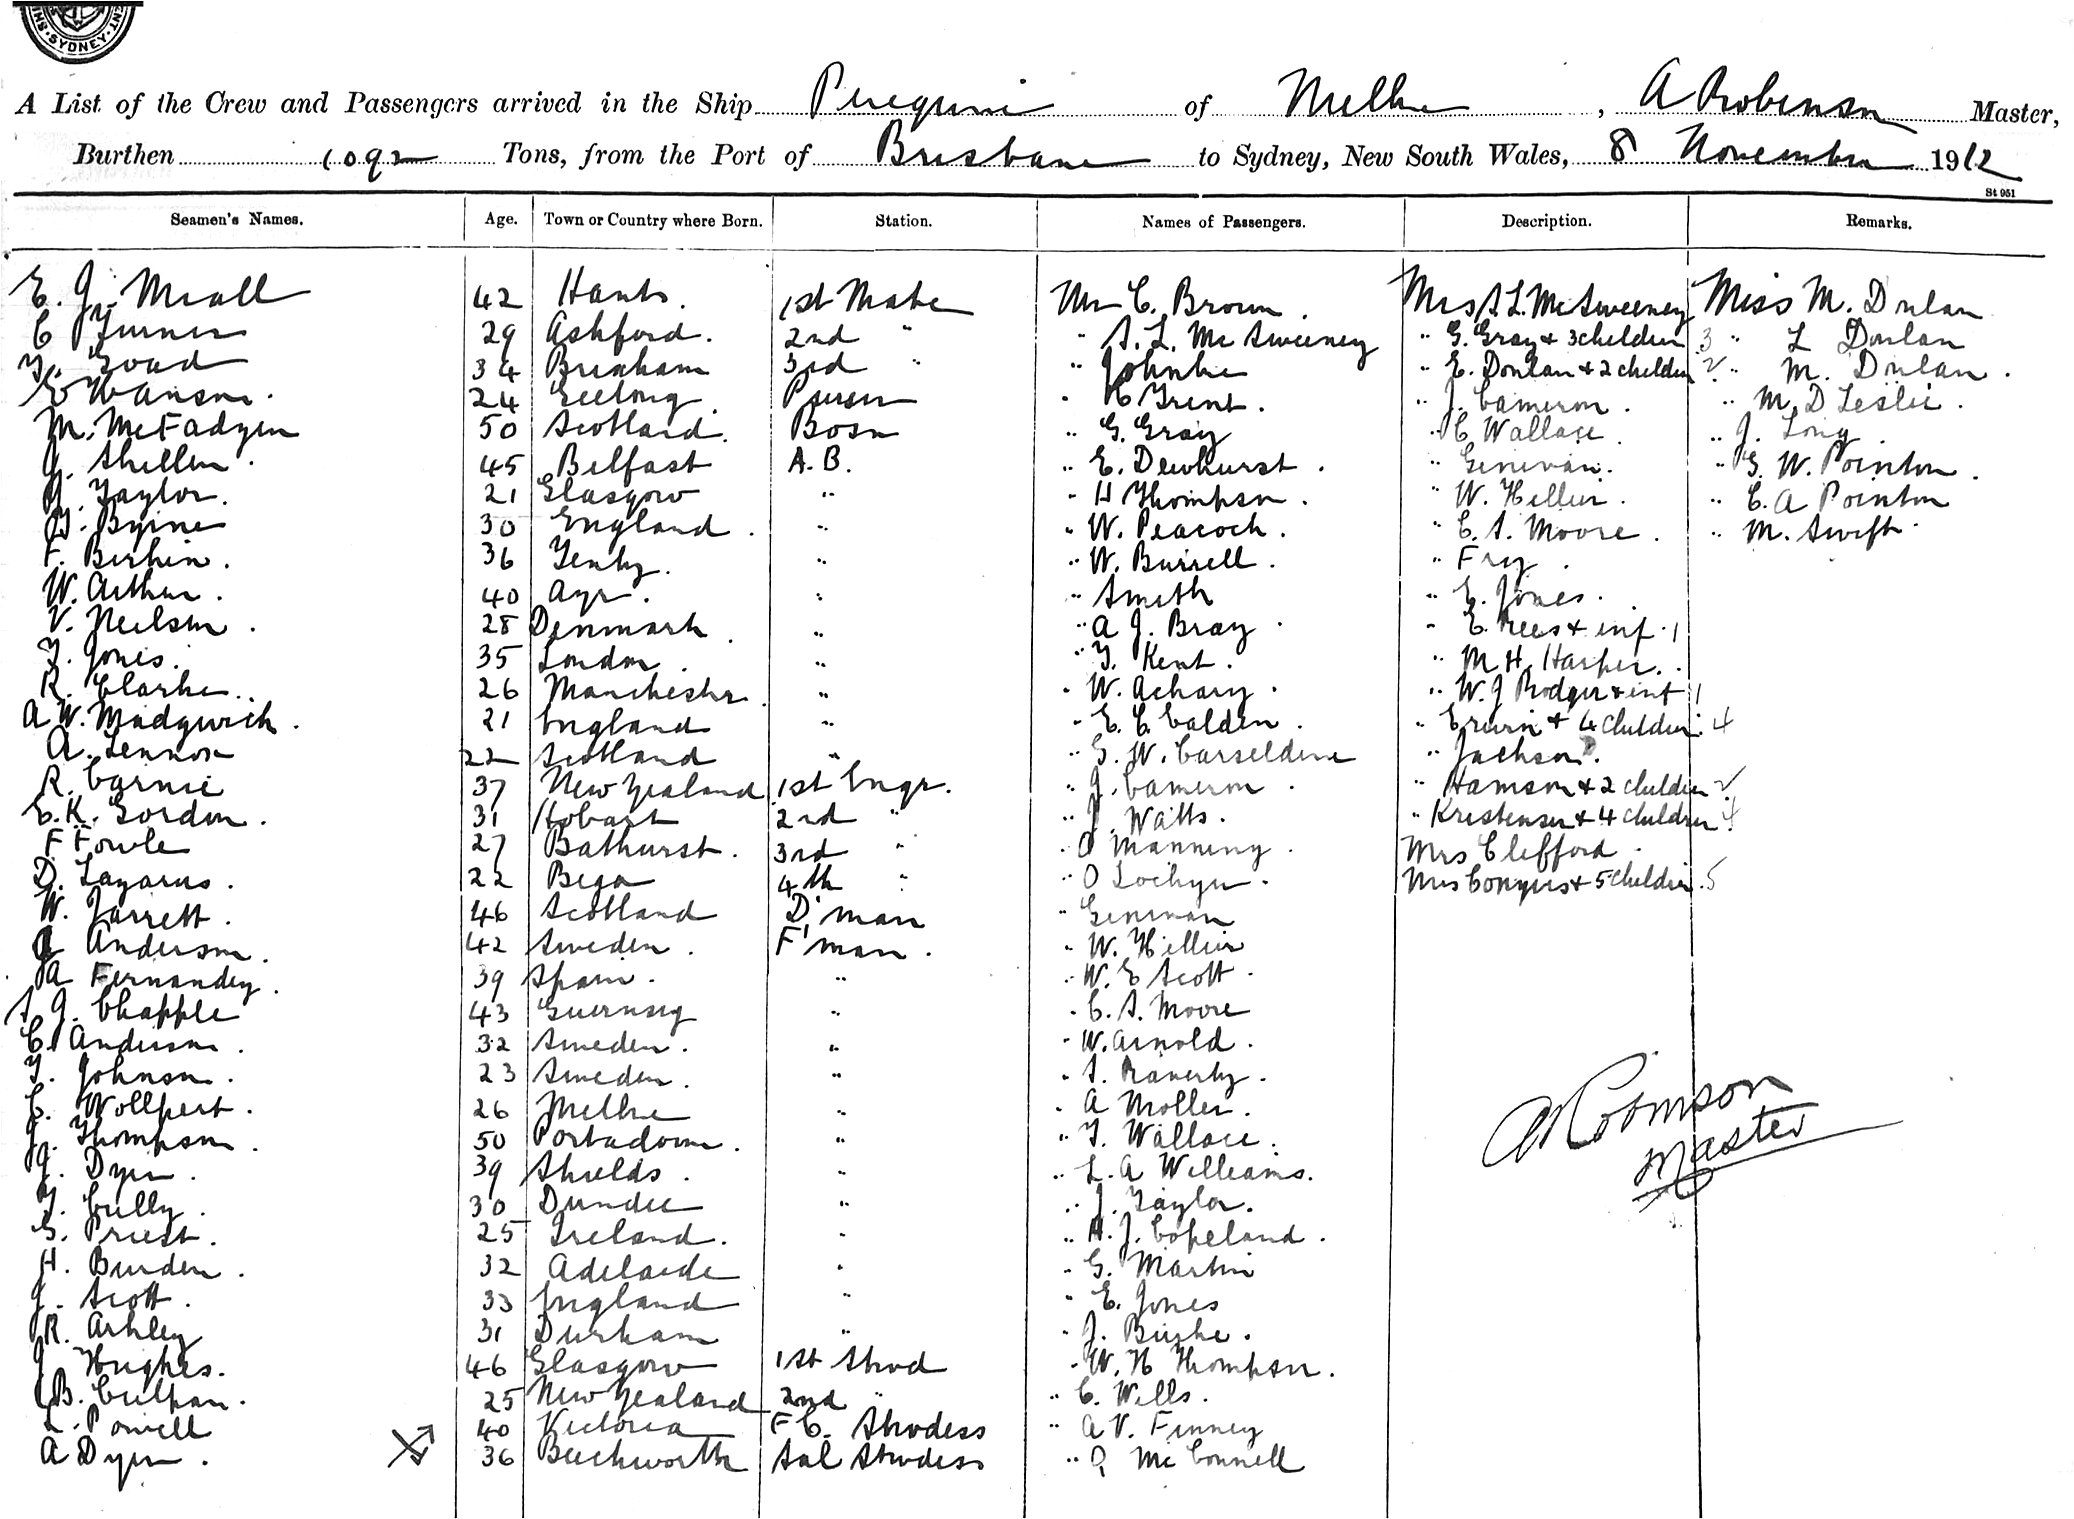 SYDNEY
A List of the Crew and Passengers arrived in the Ship Peregrine of Melbne, A Robinson Master,
Burthen 1092 Tons, from the Port of Brisbane to Sydney, New South Wales, 8 November 1912
St 951
Seamen's Names. Age. Town or Country where Born. Station. Names of Passengers. Description. Remarks.
E. J. Miall 42 Hants. 1st Mate Mr C. Brown. Mrs S. L. McSweeney Miss M. Donlan
C Turner 29 Ashford. 2nd " " S. L. McSweeney " G. Gray & 3 children 3 " L Donlan
T. Goad 34 Brixham 3rd " " Johnke " E. Donlan & 2 children 2 " M. Donlan.
24 Geelong. Purser " C Grent. " J. Cameron. " M. D Leslie.
M. McFadyen 50 Scotland. Bosn " G. Gray " C. Wallace. " J. Long.
J. Skellen. 45 Belfast A. B. " E. Dewhurst. " Genivan. " G. W. Pointon.
J. Taylor. 21 Glasgow " " H Thompson. " W. Hillier. " E. A Pointon
Byrne 30 England. " " W. Peacock. " C. S. Moore. " M. Swift.
F. Birkin. 36 Tenby. " " W. Burrell. " Fry.
W. Arthur. 40 Ayr. " " Smith " E. Jones.
V. Neilson. 28 Denmark. " " A J. Bray. " E. Rees & inf. 1
T. Jones. 35 London. " " T. Kent. " M. H. Harper.
R. Clarke. 26 Manchester. " " W. Achary. " W. J Rodger & inf 1
A W. Madgwick. 21 England " " E. C. Calden. " Erwin & 4 children. 4
A. Lennox 22 Scotland " " G. W. Carseldine " Jackson.
R. Carnie 37 New Zealand 1st Engr. " J. Cameron. " Hamson & 2 children 2
E. K. Gordon. 31 Hobart 2nd " " J. Watts. " Kristensen & 4 children 4
F Fowle 27 Bathurst. 3rd " O Manning. Mrs Clifford.
D. Lazarus. 22 Bega 4th " " O Lochyn. Mrs Conyers & 5 children. 5
W. Jarrett. 46 Scotland D'man " Genivan
J Anderson. 42 Sweden. F'man. " W. Hillier
A Fernandez. 39 Spain. " " W. E Scott.
S J. Chapple 43 Guernsey " " C. S. Moore
C. Anderson. 32 Sweden. " " W. Arnold.
T. Johnson. 23 Sweden. " " S. Raverty.
C. Wollpert. 26 Melbne " " A Moller.
J. Thompson. 50 Portadown. " " T. Wallace.
J. Dyer. 39 Shields. " " L. A Williams.
T. Cully. 30 Dundee " " J. Taylor.
G. Priest. 25 Ireland. " " H. J. Copeland.
H. Burden. 32 Adelaide " " G. Martin
J. Scott. 33 England " " E. Jones
R. Ashley 31 Durham " " J. Burke.
J Hughes. 46 Glasgow 1st Stwd " W. H Thompson.
B. Culpan. 25 New Zealand 2nd " " C. Wills.
L. Powell 40 Victoria F C. Stwdess " A V. Finney
A Dyer. 36 Beechworth Sal Stwdess " McConnell
A Robinson
Master